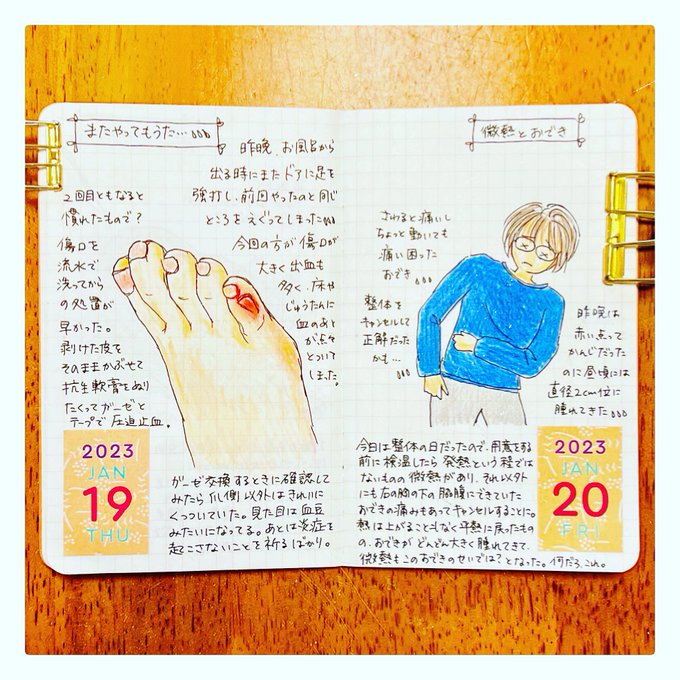 またやってもうた…
昨晩、お風呂から
出る時にまたドアに足を
強打し、前回やったのと同じ
ところをえぐってしまった
今回の方が傷口が
大きく出血も
多く、床や
じゅうたんに
血のあと
が点々
とついて
しました。
2回目ともなると
慣れたもので?
傷口を
流水で
洗ってから
の処置が
早かった。
剥けた皮を
そのままかぶせて
抗生軟膏をぬり
たくってガーゼと
テープで圧迫止血。
2023
JAN
19
THU
ガーゼ交換するときに確認して
みたら爪側以外はきれいに
くっついていた。見た目は血豆
みたいになってる。あとは炎症を
起こさないことを祈るばかり。
微熱とおでき
さわると痛いし
ちょっと動いても
痛い困った
おでき
整体を
キャンセルして
正解だった
かも…
昨晩は
赤い点って
かんじだった
のに昼頃には
直径2cm位に
腫れてきた
今日は整体の日だったので、用意をする
前に検温したら発熱という程では
ないものの微熱があり、それ以外
にも右の胸の下の脇腹にできていた
おできの痛みもあってキャンセルすることに。
熱は上がることはなく平熱に戻ったもの
の、おできがどんどん大きく腫れてきて、
微熱もこのおできのせいでは?となった。何だろ、これ。
2023
JAN
20
FRI